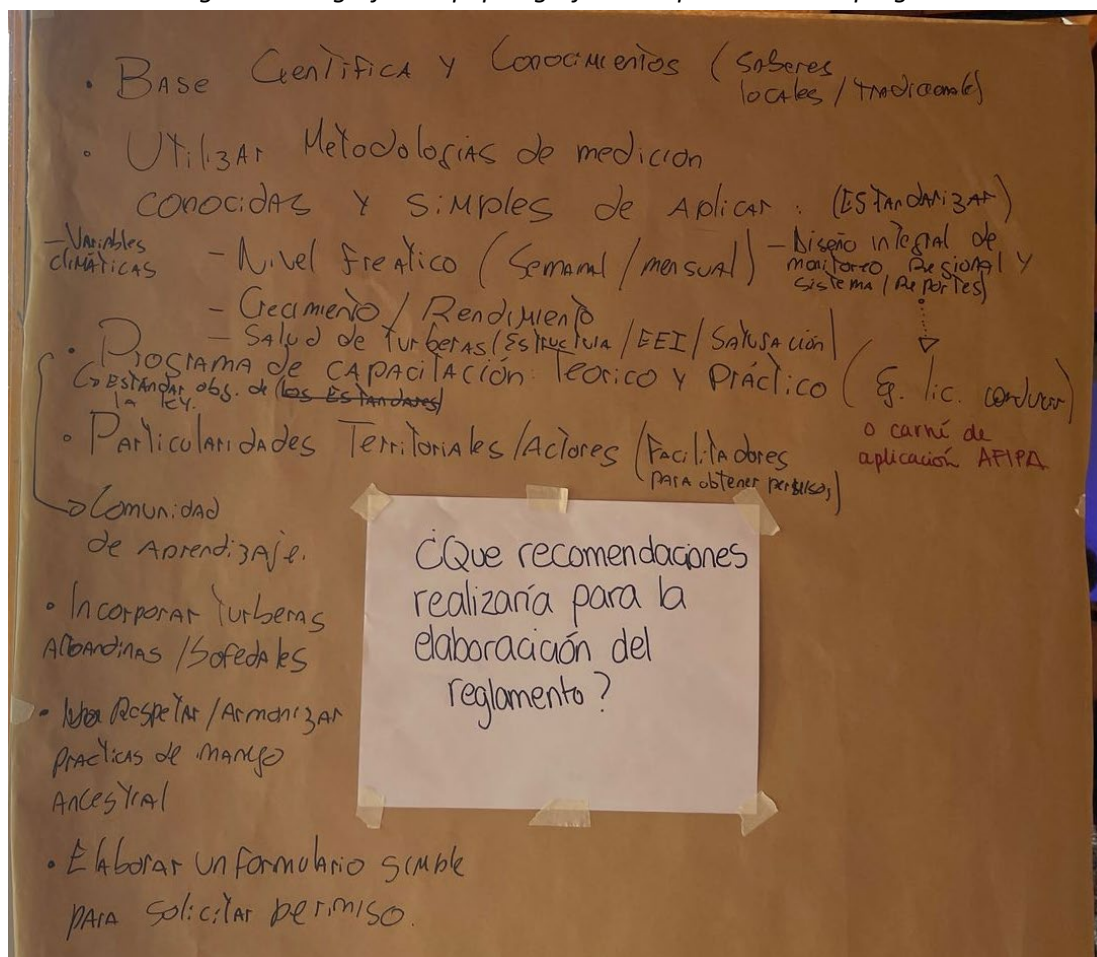 • Base Científica y Conocimientos (Saberes
locales / tradicionales)
• Utilizar Metodologías de medición
conocidas y simples de aplicar : (Estandarizar)
– Variables
climáticas
– Nivel freático (Semanal / mensual)
– Diseño integral de
monitoreo Regional y
sistema (Reportes)
– Crecimiento / Rendimiento
– Salud de turberas (Estructura / EEI / Saturación)
• Programa de capacitación: Teorico y Práctico (Ej. lic. conducir)
Estándar obs. de los Estandares
la ley.
o carné de
aplicación AFIPA
• Particularidades Territoriales / Actores (Facilitadores
para obtener permisos)
Comunidad
de Aprendizaje.
• Incorporar Turberas
Altoandinas / Bofedales
• Respetar / Armonizar
practicas de manejo
Ancestral
• Elaborar un formulario simple
para solicitar permiso.
¿Que recomendaciones
realizaría para la
elaboracición del
reglamento?